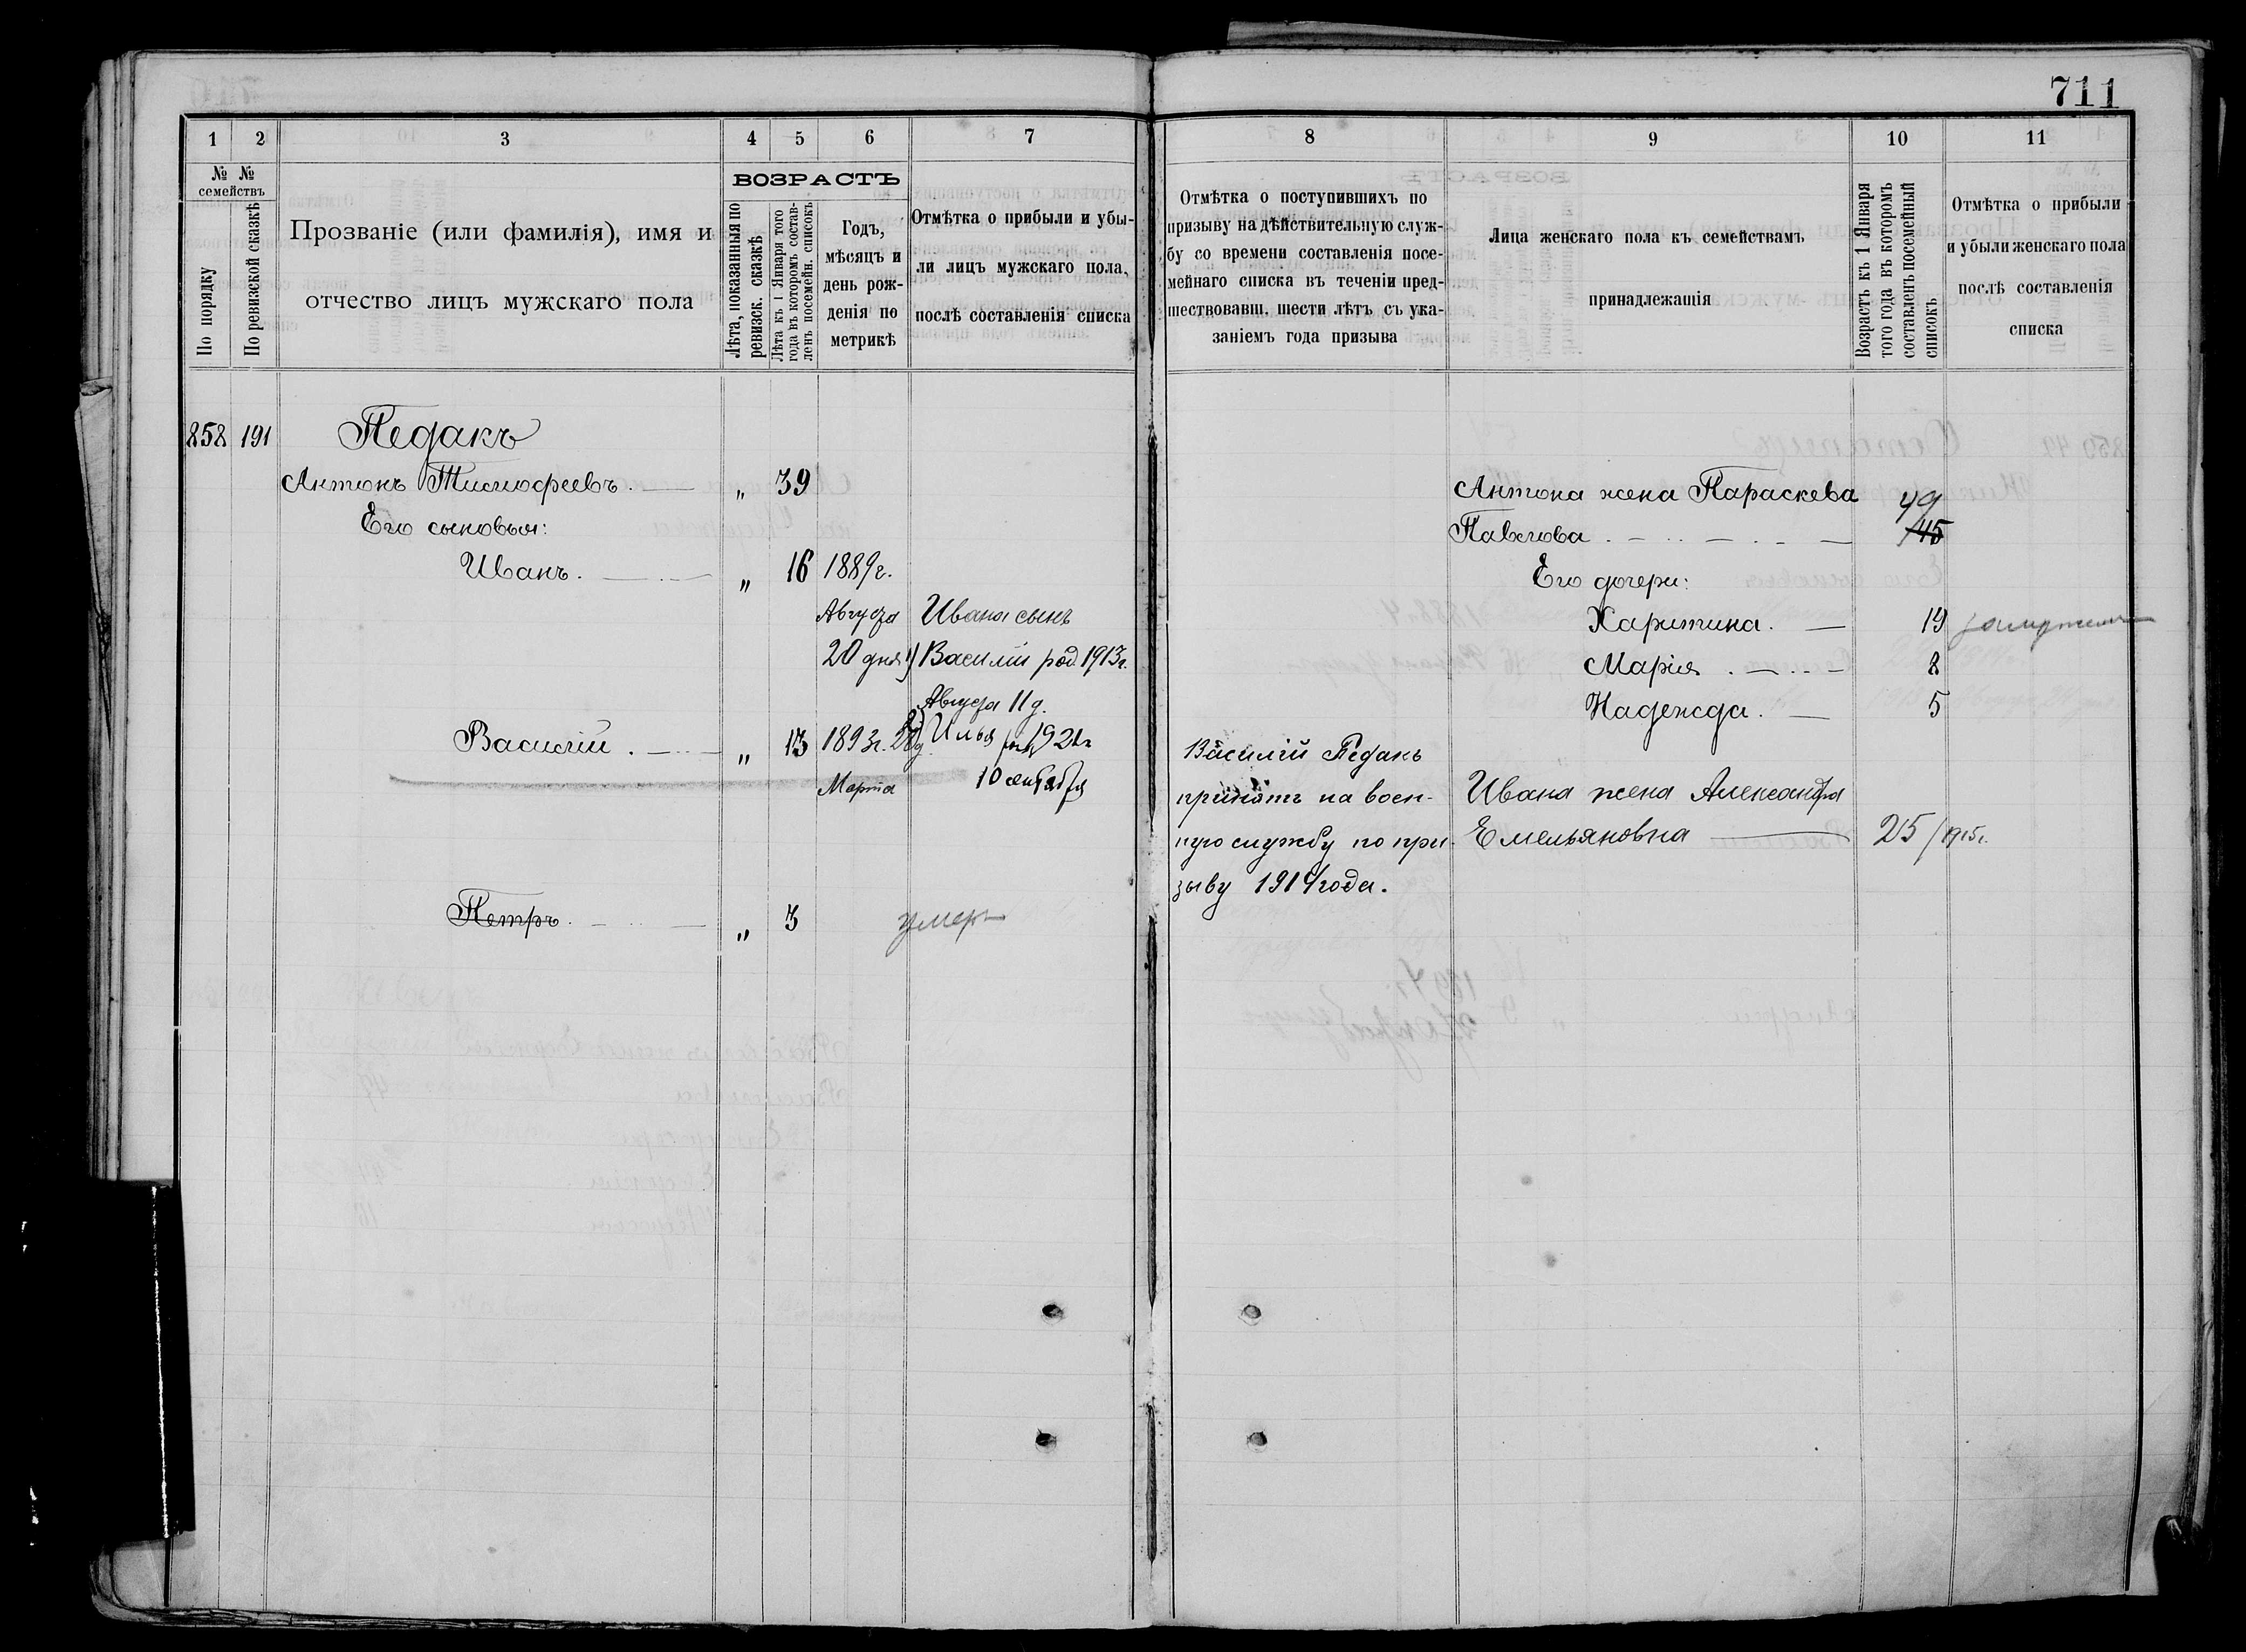 711
1 2 3 4 5 6 7
№ № семействъ
По порядку
По ревизской сказкѣ
Прозваніе (или фамилія), имя и
отчество лицъ мужскаго пола
ВОЗРАСТЪ
Лѣта, показанныя по
ревизск. сказкѣ
Лѣта къ 1 Января того
года въ которомъ состав-
ленъ посемейн. списокъ
Годъ,
мѣсяцъ и
день рож-
денія по
метрикѣ
Отмѣтка о прибыли и убы-
ли лицъ мужскаго пола,
послѣ составленія списка
858 191 Педакъ
Антонъ Тимофеевъ. „ 39
Его сыновья:
Иванъ. „ 16 1889г.
Августа Ивана сынъ
20 дня 1) Василій род. 1913г.
Августа 11 д.
Василій. „ 13 1893г. 28 д. 2) Илья 1921г
Марта 10 сентября
Петръ. „ 3 умеръ
8 9 10 11
Отмѣтка о поступившихъ по
призыву на дѣйствительную служ-
бу со времени составленія посе-
мейнаго списка въ теченіи пред-
шествовавш. шести лѣтъ съ ука-
заніемъ года призыва
Лица женскаго пола къ семействамъ
принадлежащія
Возрастъ къ 1 Января
того года въ которомъ
составленъ посемейный
списокъ
Отмѣтка о прибыли
и убыли женскаго пола
послѣ составленія
списка
Антона жена Параскева 49
Павлова 45
Его дочери:
Харитина. 19 замужемъ
Марія 8
Надежда. 5
Василій Педакъ
принятъ на воен-
ную службу по при-
зыву 1914 года.
Ивана жена Александра
Емельяновна 25 / 1915г.